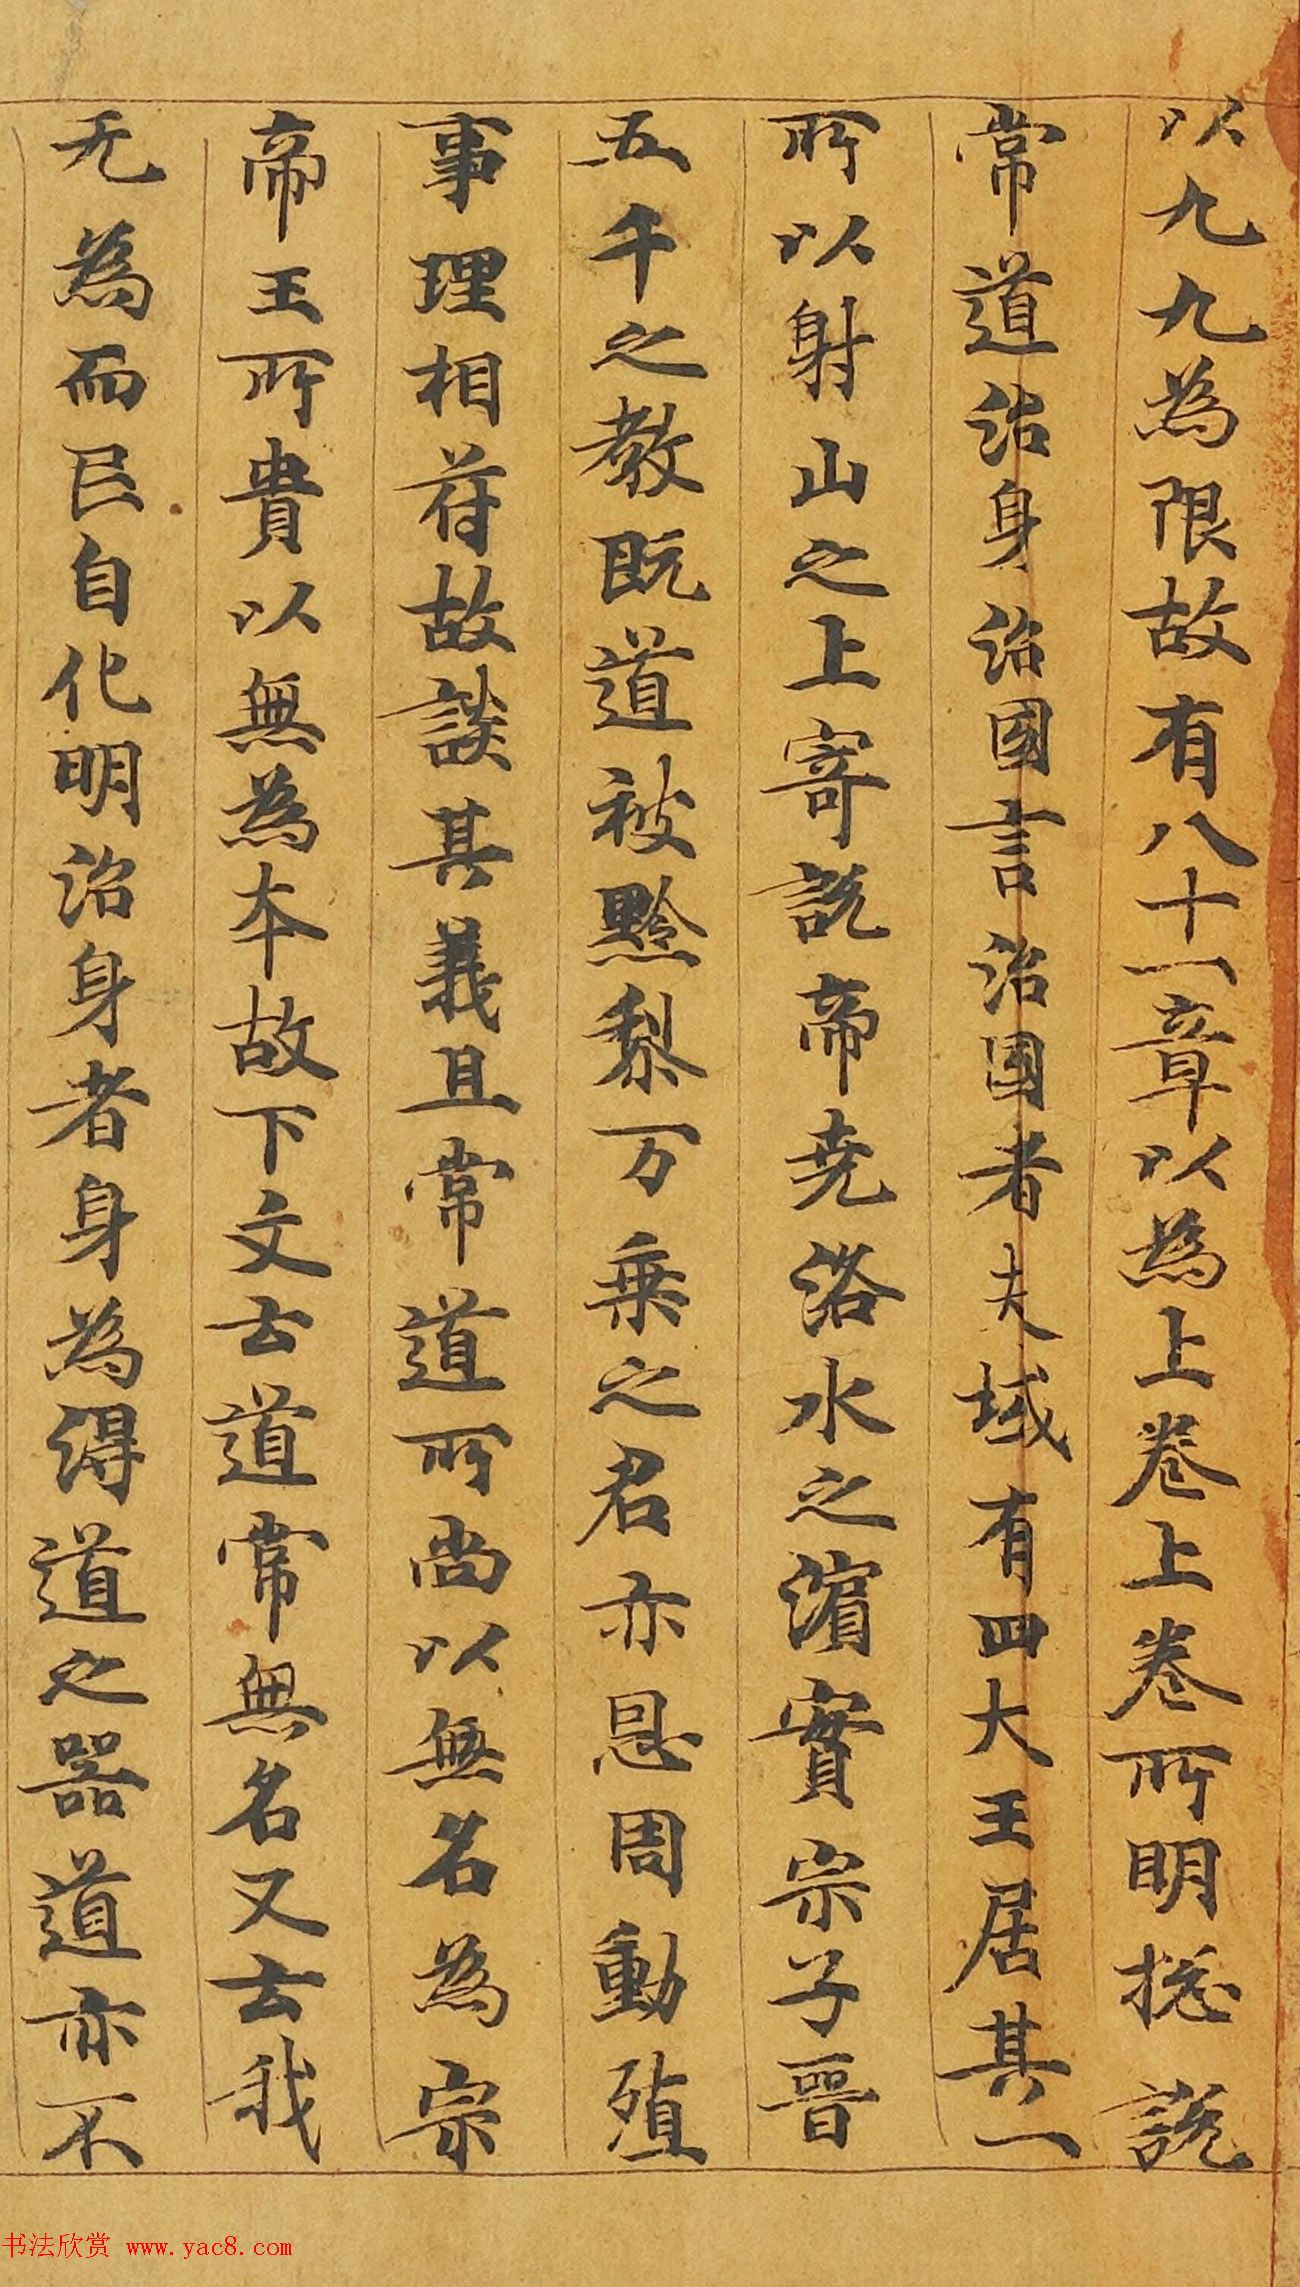 以九九為限故有八十一章以為上卷上卷所明捴説
常道治身治國言治國者夫域有四大王居其一
所以射山之上寄説帝尭洛水之濵實宗子晋
五千之教既道被黔黎万乗之君亦恩周動殖
事理相苻故談其義且常道所尚以無名為宗
帝王所貴以無為本故下文云道常無名又云我
无為而巳自化明治身者身為得道之器道亦不
书法欣赏 www.yac8.com